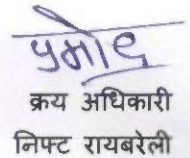 प्रमोद
क्रय अधिकारी
निफ्ट रायबरेली